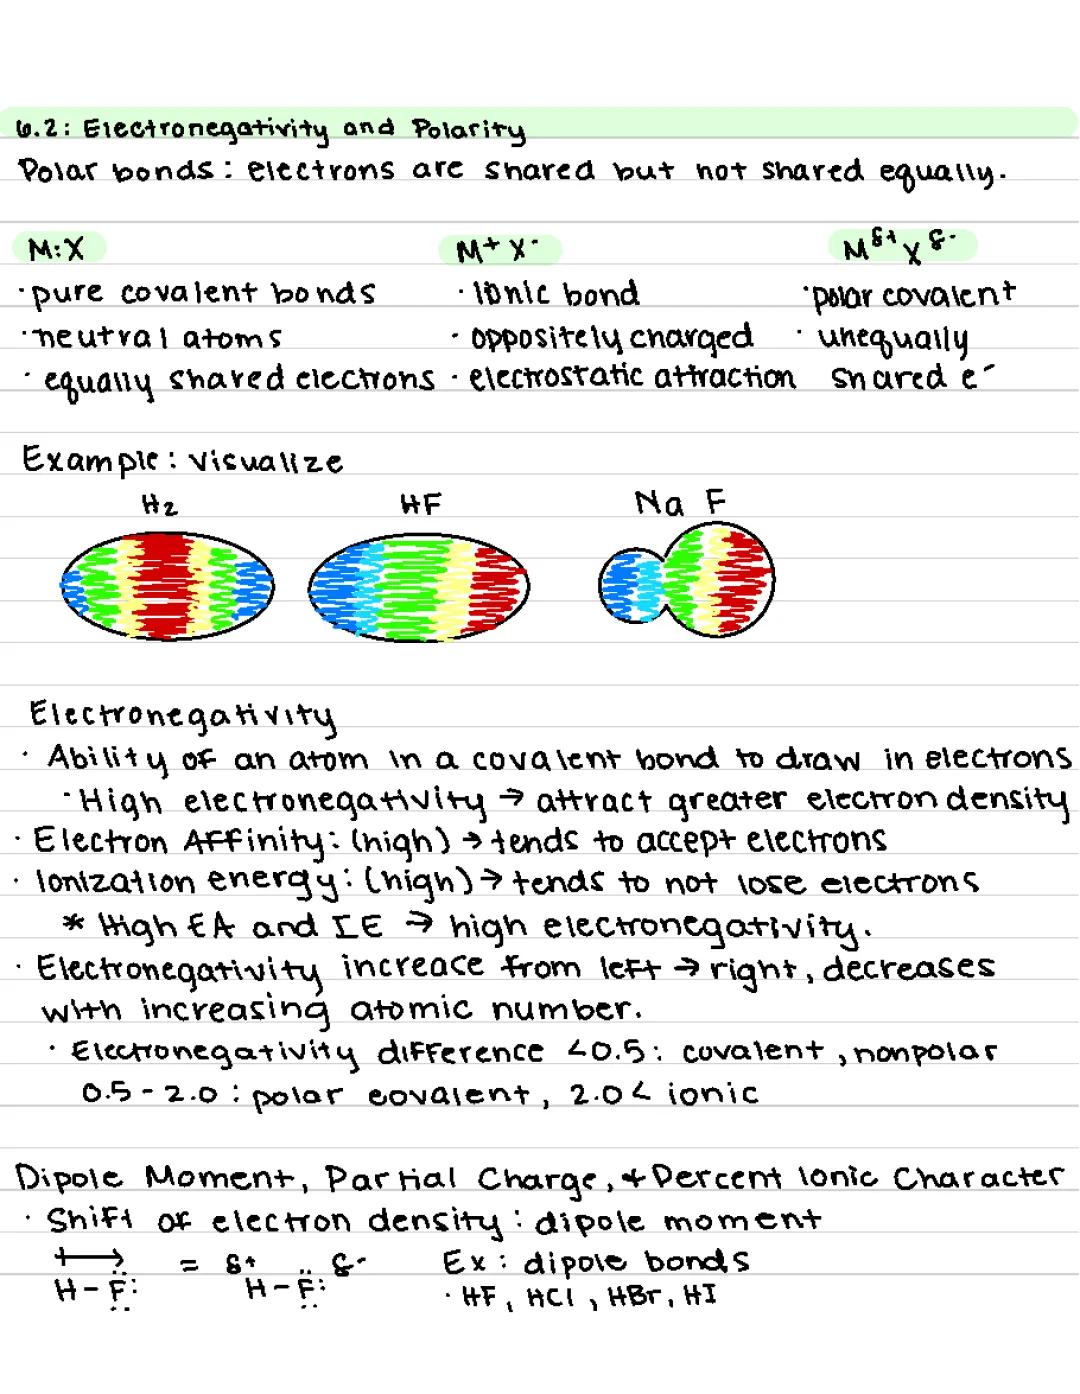 6.2: Electronegativity and Polarity
Polar bonds: electrons are shared but not shared equally.
M:X M⁺ X⁻ M^δ+ X^δ-
· pure covalent bonds · Ionic bond · polar covalent
· neutral atoms · oppositely charged · unequally
· equally shared electrons · electrostatic attraction shared e⁻
Example: Visualize
H₂ HF Na F
Electronegativity
· Ability of an atom in a covalent bond to draw in electrons
· High electronegativity → attract greater electron density
· Electron Affinity: (high) → tends to accept electrons
· Ionization energy: (high) → tends to not lose electrons
* High EA and IE → high electronegativity.
· Electronegativity increase from left → right, decreases
with increasing atomic number.
· Electronegativity difference <0.5: covalent, nonpolar
0.5-2.0: polar covalent, 2.0< ionic
Dipole Moment, Partial Charge, + Percent Ionic Character
· Shift of electron density: dipole moment
= δ+ δ- Ex: dipole bonds
H-F: H-F: · HF, HCl, HBr, HI